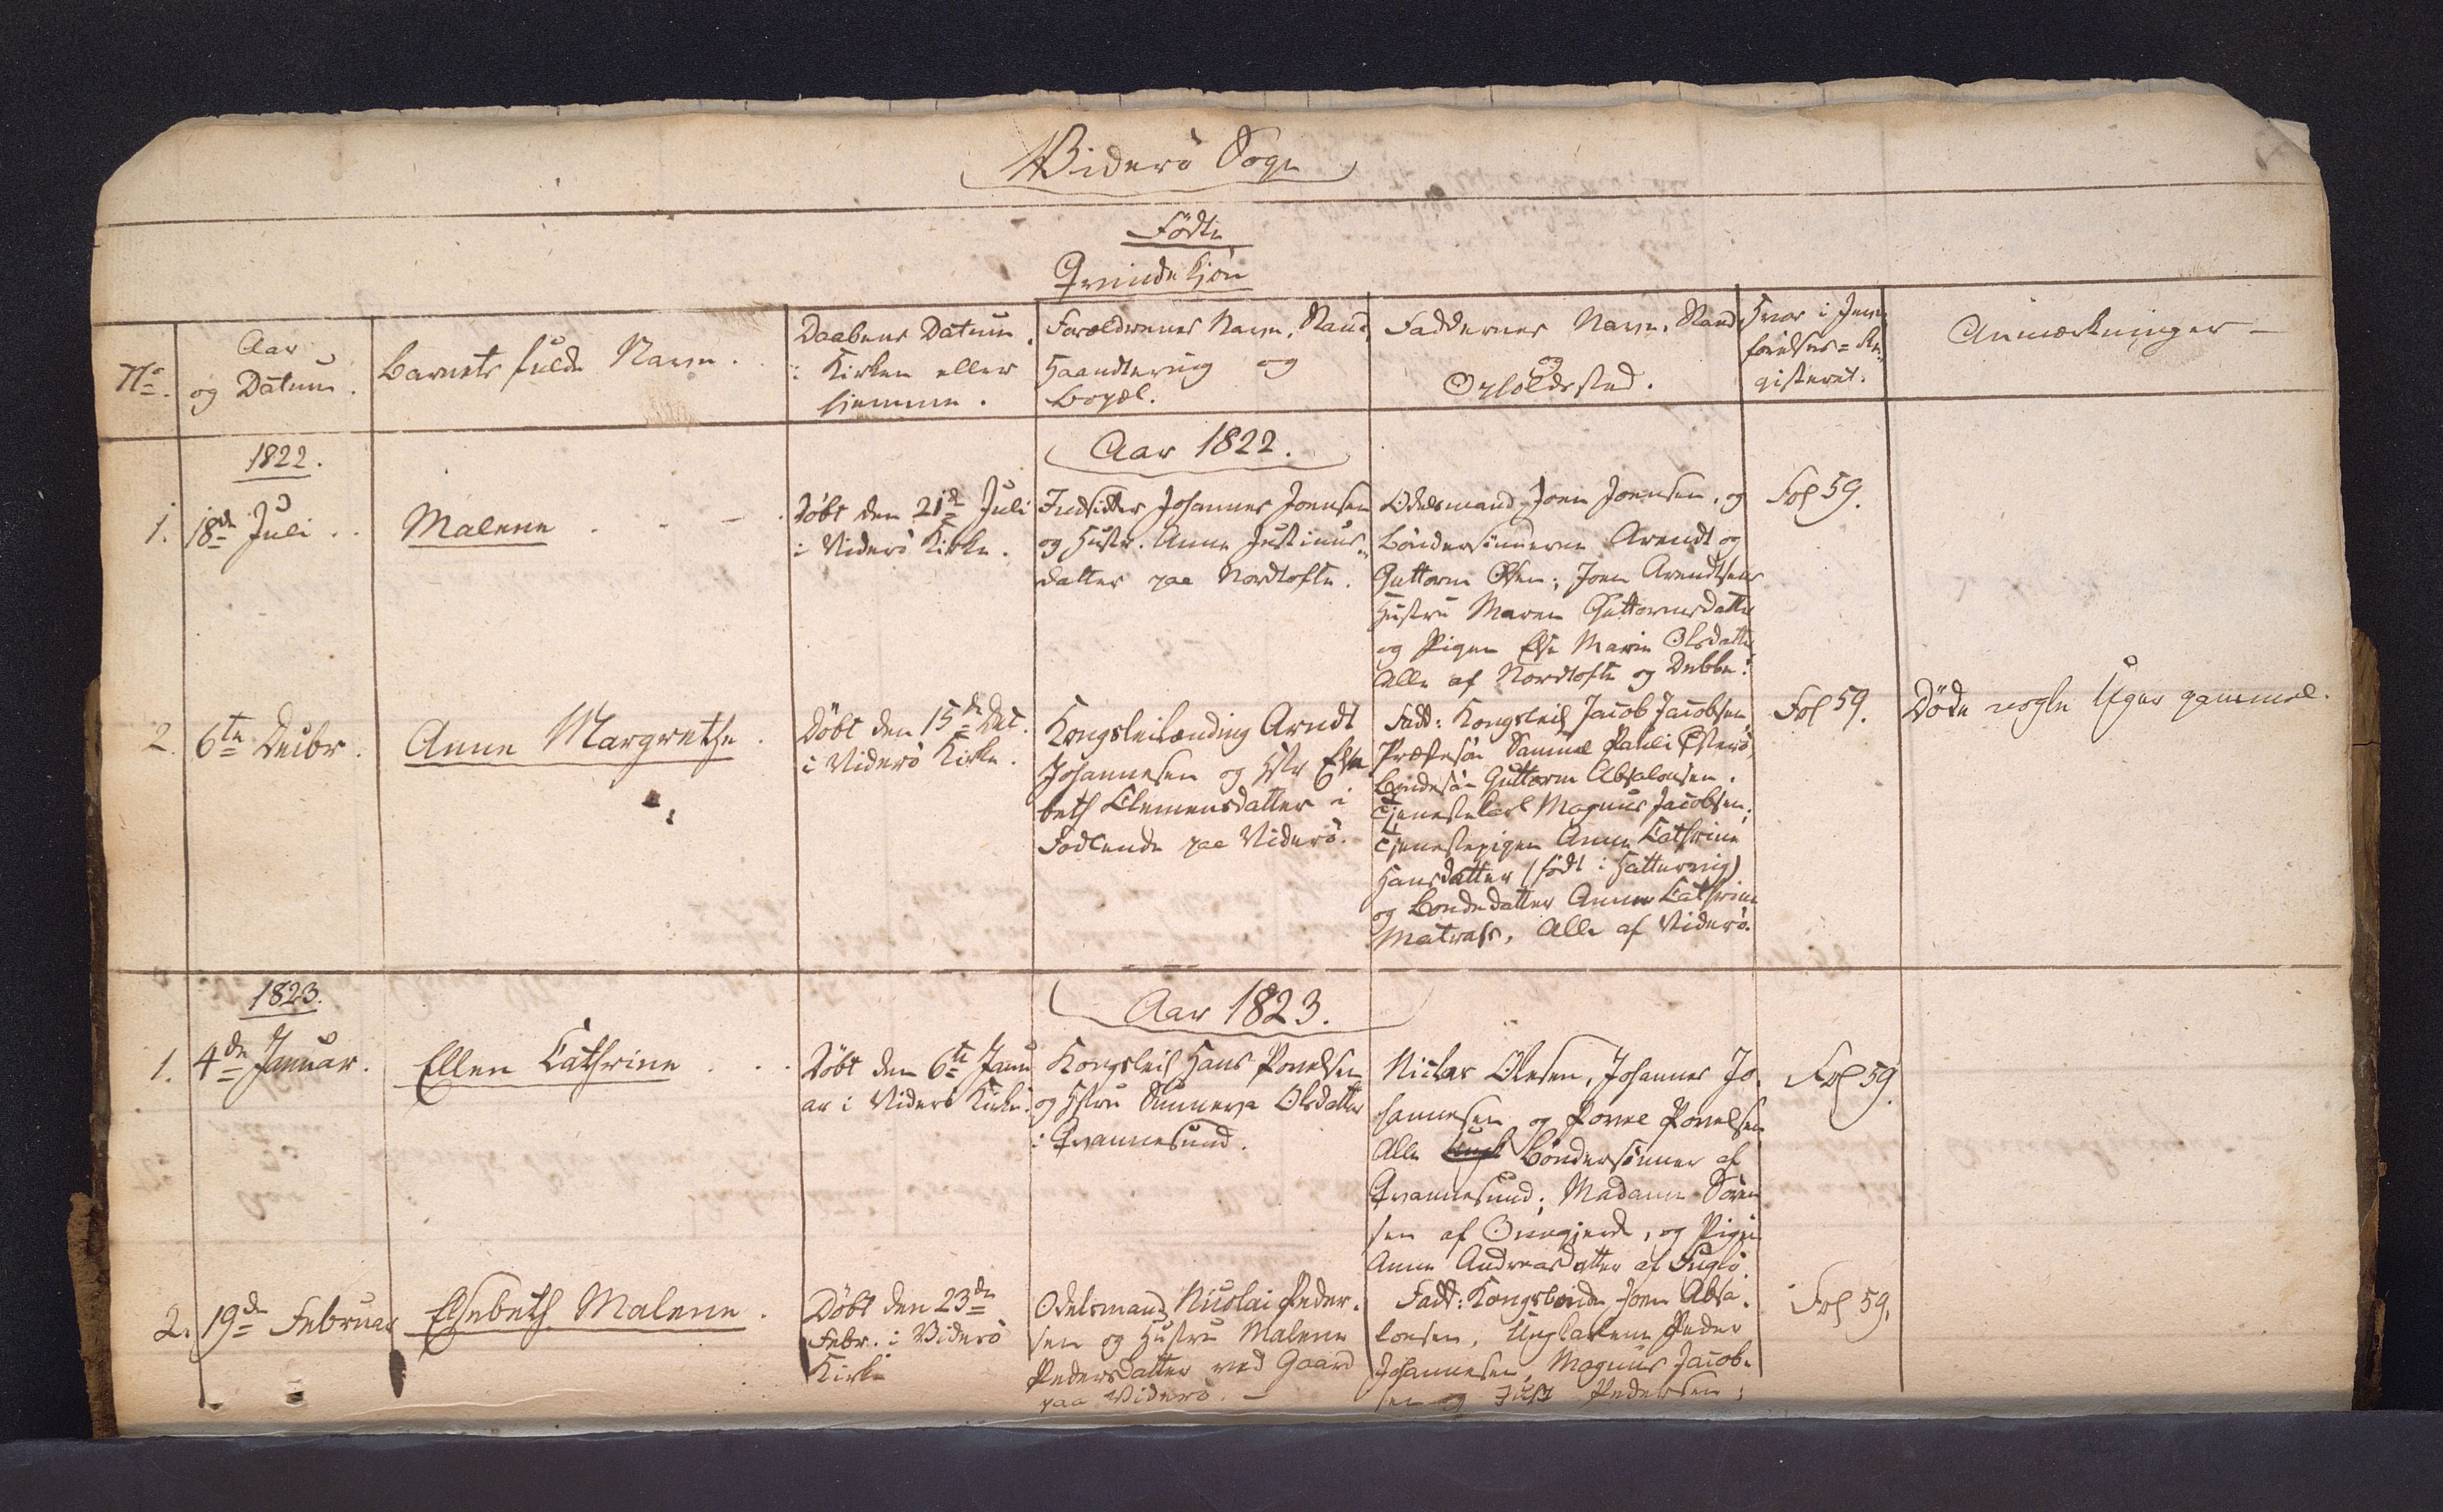 Viderö Sogn
Födte
Qvindekjön
No.
Aar
og Datum.
Barnets fulde Navn.
Daabens Datum.
i Kirken eller
hjemme.
Forældrenes Navn, Stand,
Haandtering og
Bopæl.
Faddernes Navn, Stand
og
Opholdssted.
Hvor i Jevn
förelses=Re„
gisteret.
Anmærkninger
1822.
Aar 1822.
1.
18de Juli
Malene
Döbt den 21de Juli
i Viderö Kirke.
Indsidder Johannes Joensen
og Hustr. Anne Justinus„
datter paa Nordtofte.
Odelsmand Joen Joensen, og
Böndersönnerne Arendt og
Guttorm Olsen; Joen Arendtsens
Hustru Maren Guttormsdatter
og Pigen Else Marie Olsdatter
Alle af Nordtofte og Debbe.
Fol 59.
2.
6te Decbr.
Anne Margrethe
Döbt den 15de Dec.
i Viderö Kirke.
Kongsleilænding Arndt
Johannesen og Hstr Elsa
beth Clemensdatter i
Fodlende paa Viderö.
Fadd: Kongsleil Jacob Jacobsen,
Præstesön Samuel Pauli Österö,
Bondesön Guttorm Absalonsen.
Tjenestekarl Magnus Jacobsen;
Tjenestepigen Anne Cathrine
Hansdatter (födt i Hattervig)
og Bondedatter Anne Cathrine
Matrass, Alle af Viderö.
Fol 59.
Döde nogle Uger gammel.
1823.
Aar 1823.
1.
4de Januar.
Ellen Cathrine
Döbt den 6te Janu
ar i Viderö Kirke.
Kongsleil Hans Povelsen
og Hstru Sunneva Olsdatter
i Qvannesund.
Niclas Olesen, Johannes Jo„
hannesen og Povel Povelsen
Alle Böndersönner af
Qvannesund; Madame Sören
sen af Onnegjerde, og Pigen
Anne Andreasdatter af Fuglö.
Fol 59.
2.
19de Februar
Elsebeth Malene
Döbt den 23de
Febr. i Viderö
Kirke
Odelsmand Nicolai Peder„
sen og Hustru Malene
Pedersdatter ved Gaard
paa Viderö.
Fadd: Kongsbonde Joen Absa„
lonsen, Ungkarlene Peder
Johannesen, Magnus Jacob„
sen og Just Pedersen;
Fol 59.